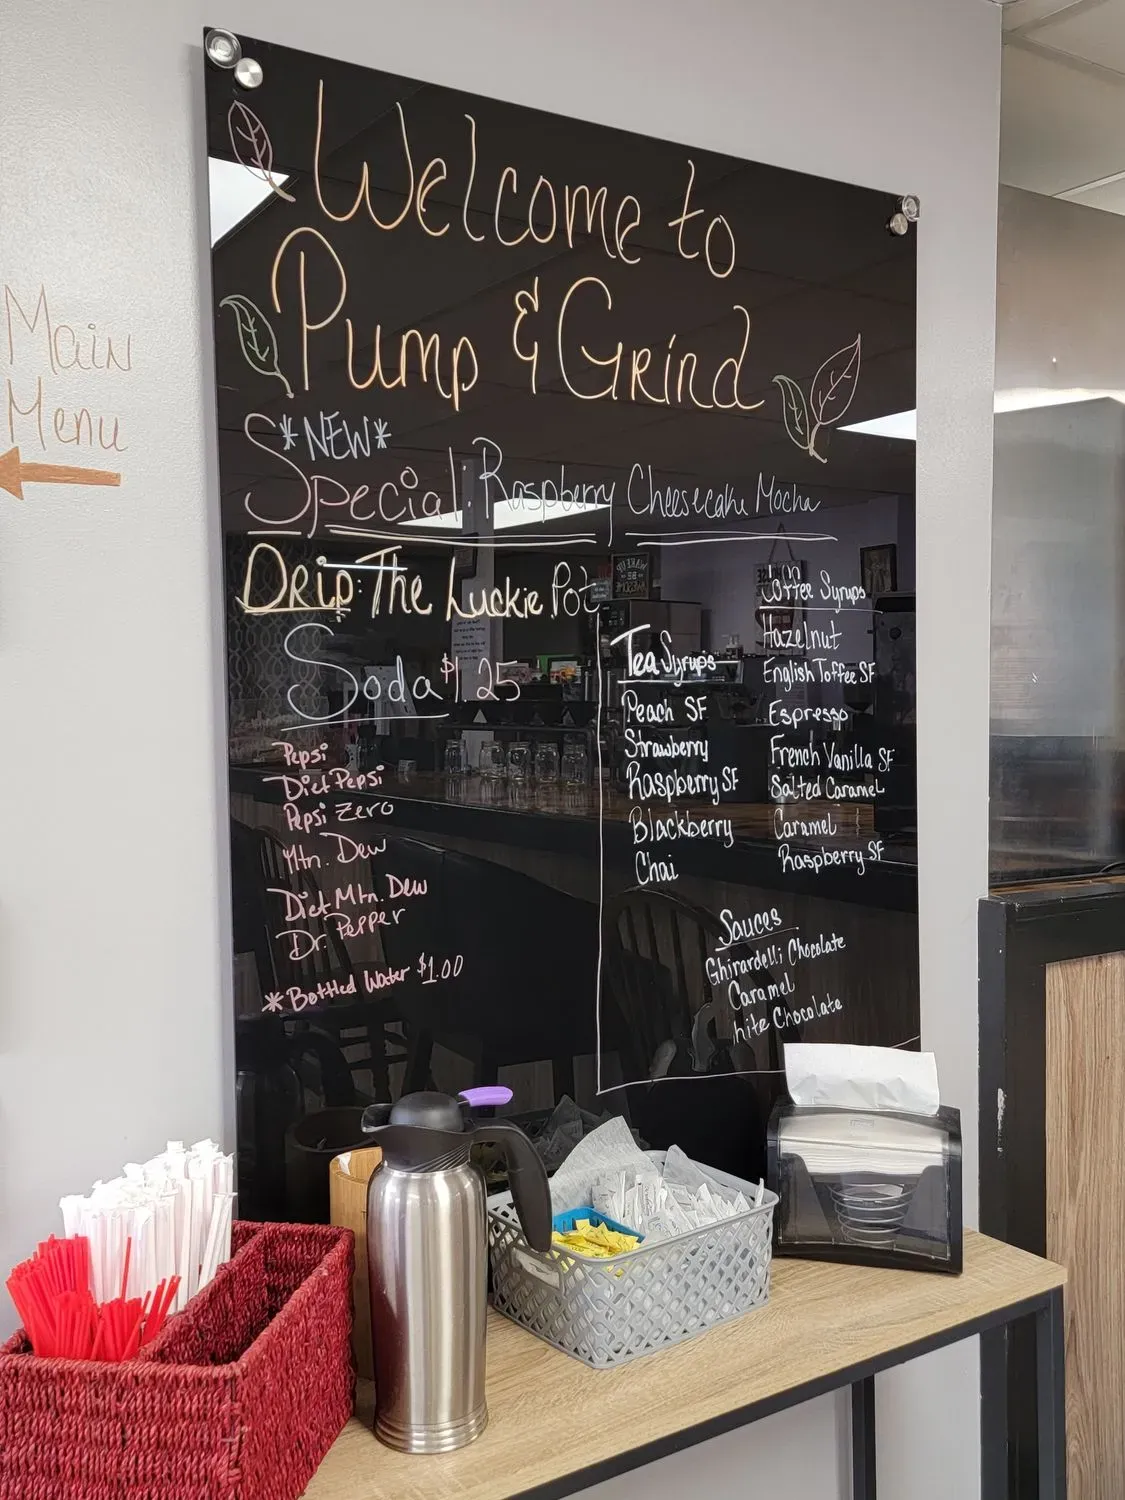 Main
Menu
Welcome to
Pump & Grind
*NEW*
Special: Raspberry Cheesecake Mocha
Drip: The Luckie Pot
Soda $1.25
Pepsi
Diet Pepsi
Pepsi Zero
Mtn. Dew
Diet Mtn. Dew
Dr. Pepper
*Bottled Water $1.00
Tea Syrups
Peach SF
Strawberry
Raspberry SF
Blackberry
Chai
Coffee Syrups
Hazelnut
English Toffee SF
Espresso
French Vanilla SF
Salted Caramel
Caramel
Raspberry SF
Sauces
Ghirardelli Chocolate
Caramel
hite Chocolate